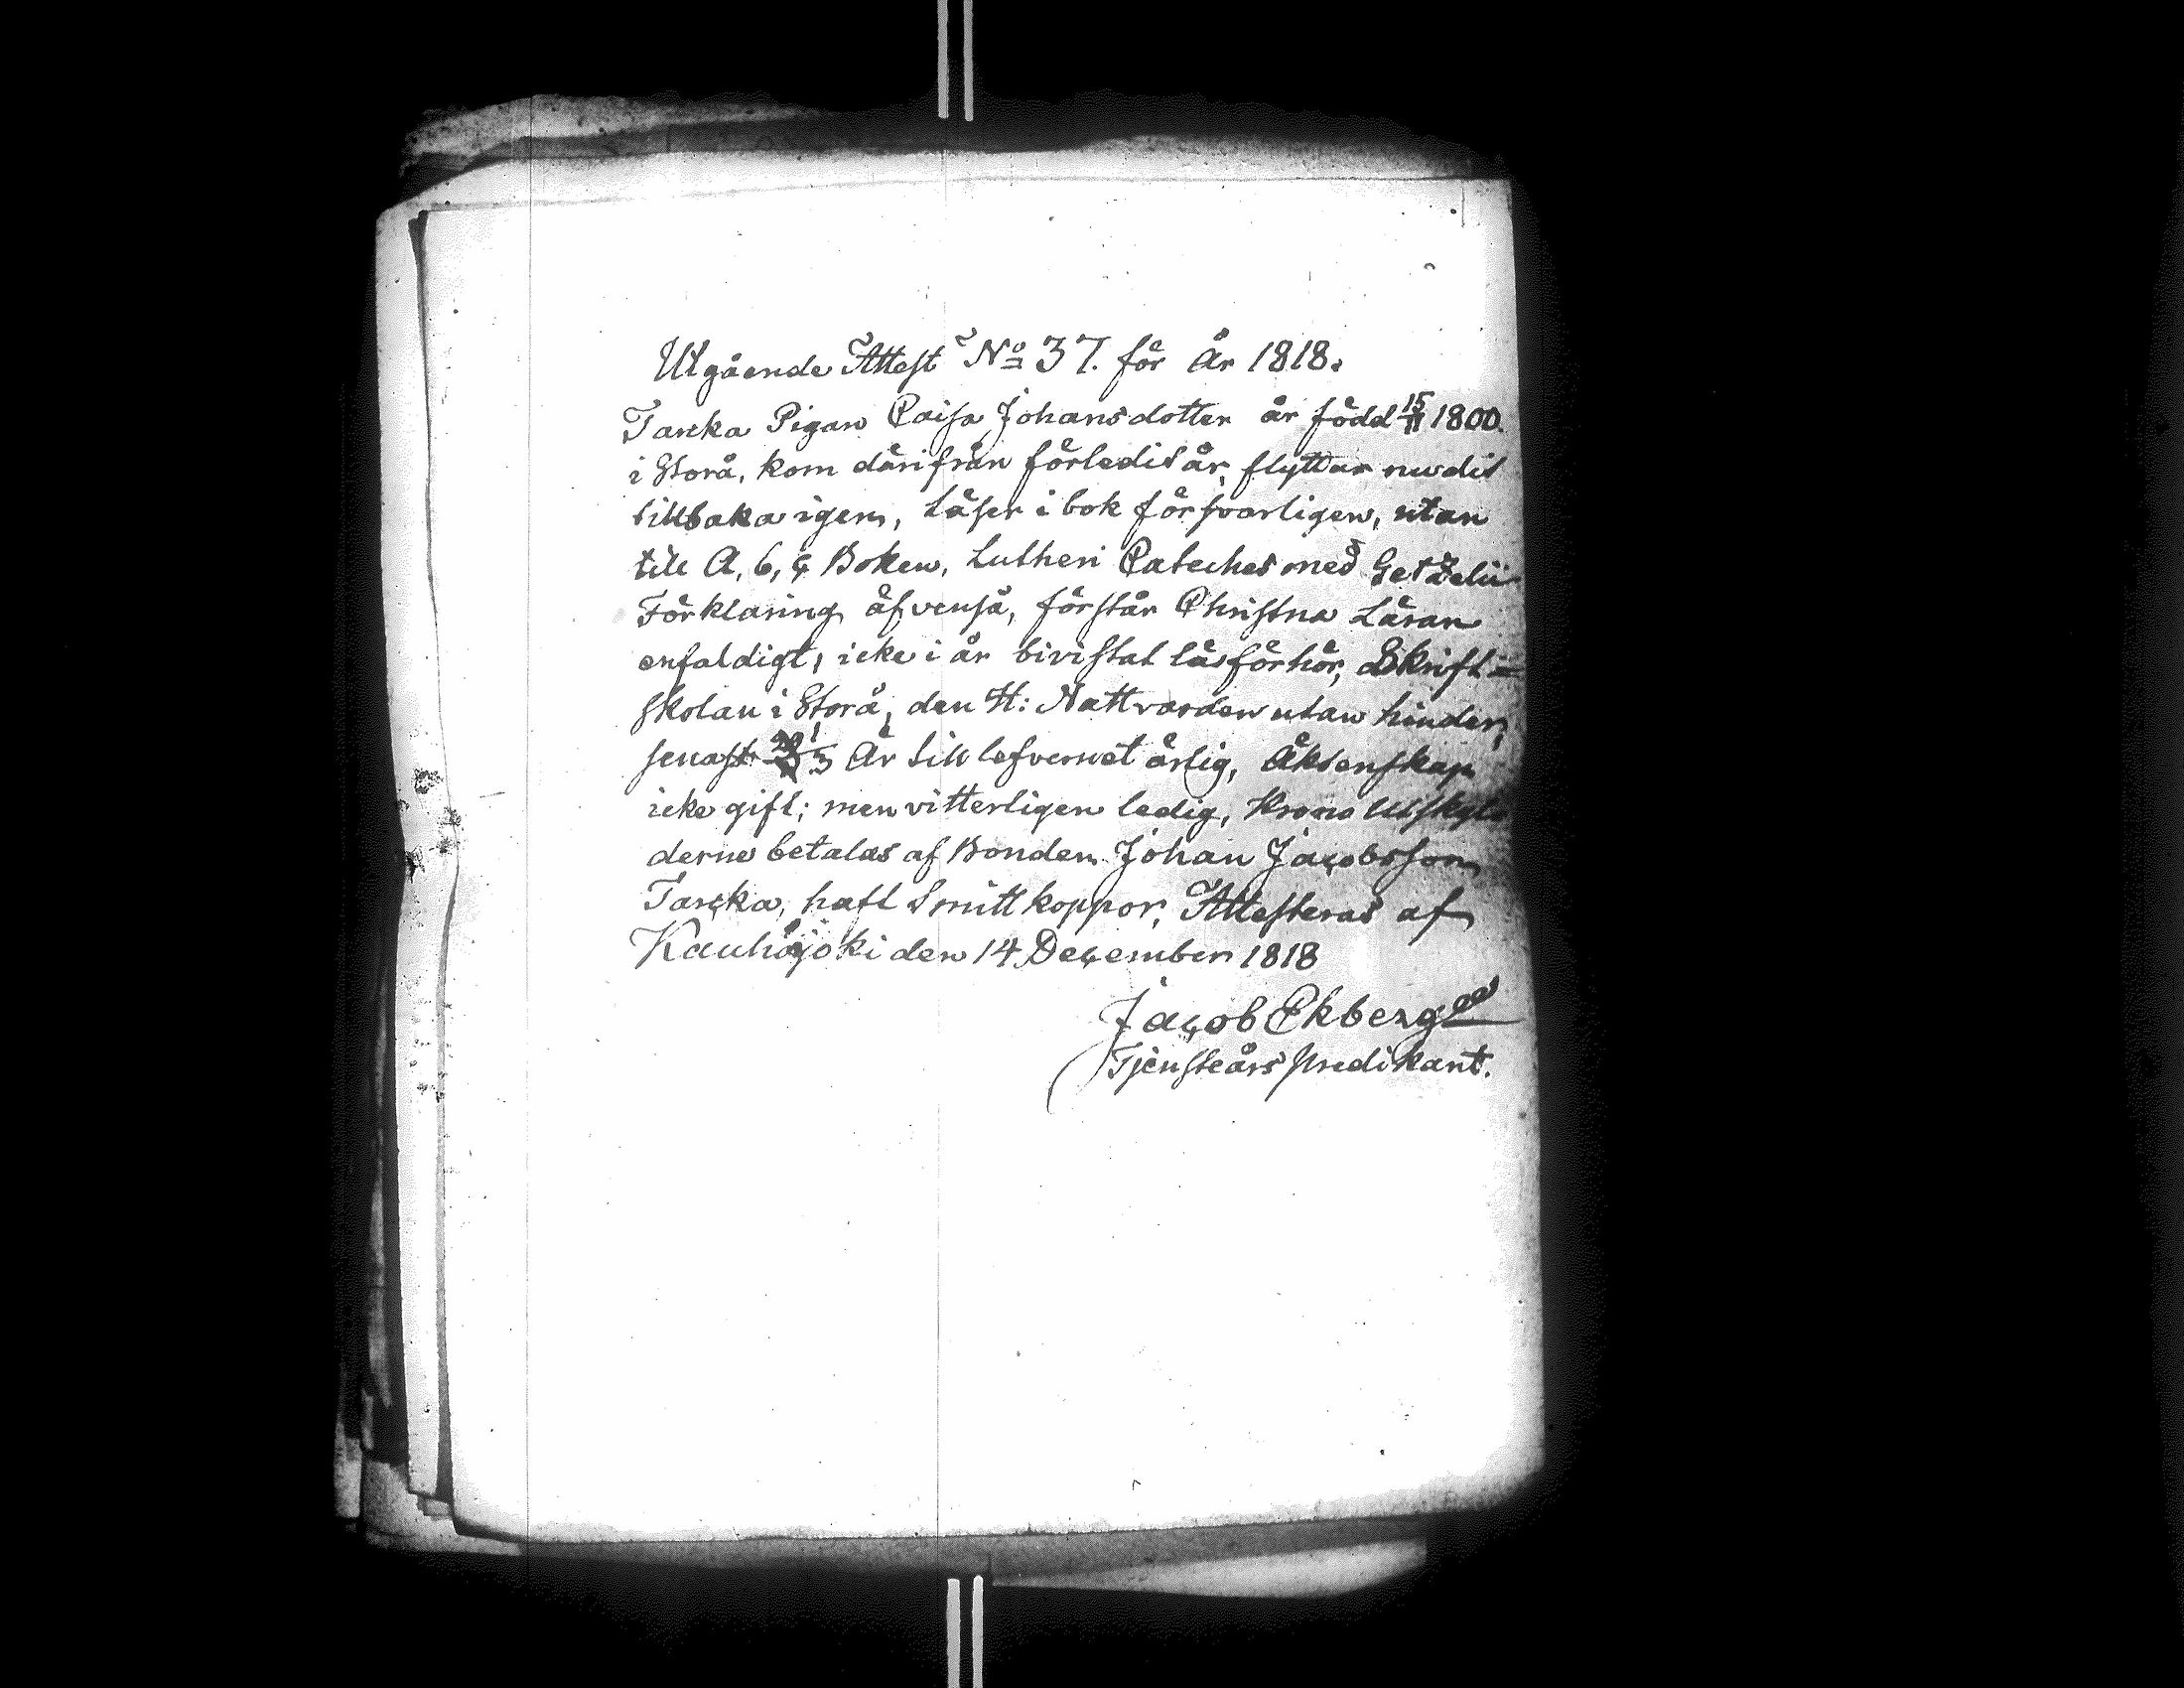 Utgående Attest No 37. för År 1818.
Tarcka Pigan Caisa Johansdotter är född 15/11 1800.
i Storå, kom därifrån förledit år, flyttar nu dit
tillbaka igen, Läser i bok försvarligen, utan
till A, b, c Boken, Lutheri Cateches med Getzelii
Förklaring äfvenså, förstår Christna Läran
enfaldigt, icke i år bivistat läsförhör, Skrift=
skolan i Storå, den H: Nattvarden utan hinder,
senast Är till lefvernet ärlig, Äktenskap
icke gift; men vitterligen ledig, Krono Utskyl
derne betalas af Bonden Johan Jacobsson
Tarcka, haft Smittkoppor, Attesteras af
Kauhajoki den 14 December 1818
Jacob Ekberg
Tjensteårs Predikant.